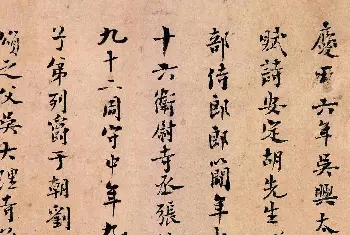 慶曆六年吳興太
賦詩安定胡先生
部侍郎郎簡年
十六衛尉寺丞張
九十二周守中年九
子弟列爵于朝劉
頌之父吳大理寺